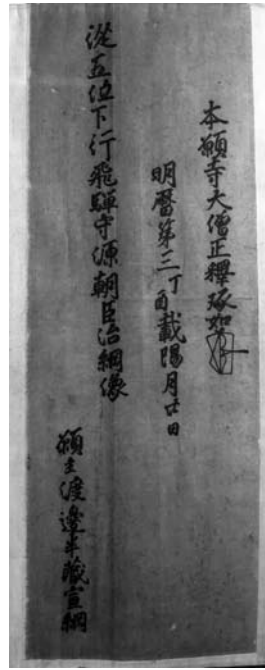 本願寺大僧正釋琢如
明曆第三丁酉載陽月廿日
從五位下行飛驒守源朝臣治綱像
願主渡邊半藏宣綱